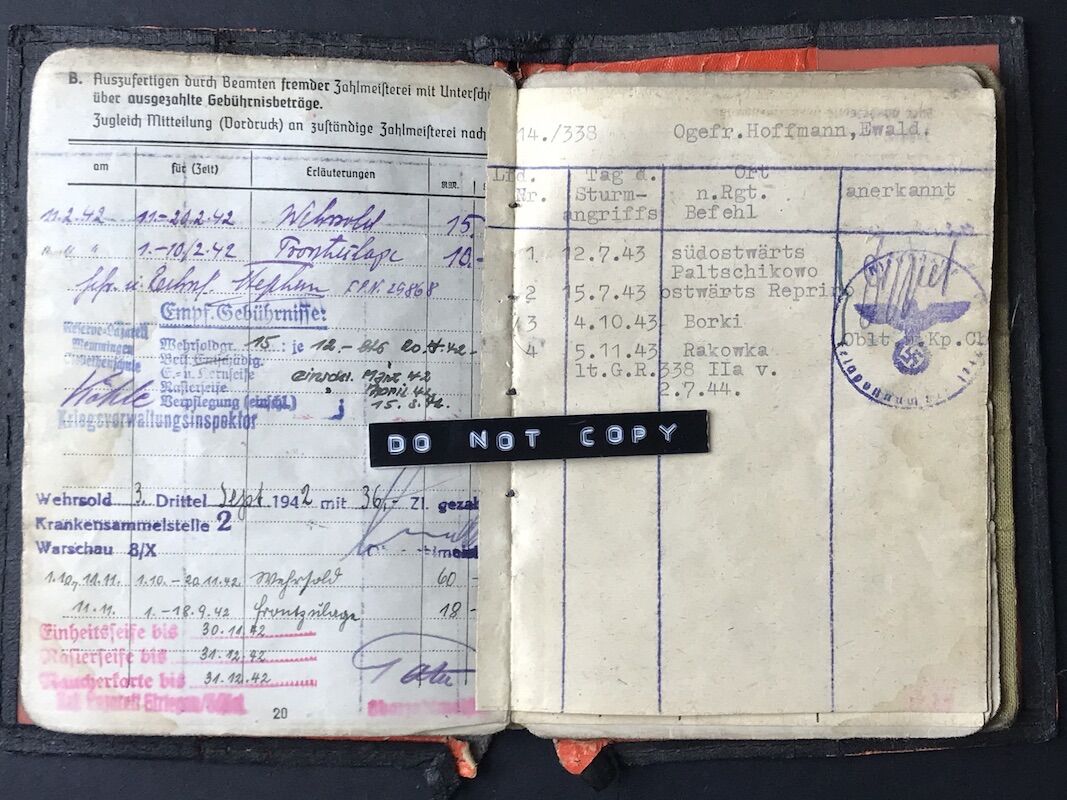 B. Auszufertigen durch Beamten fremder Zahlmeisterei mit Unterschr
über ausgezahlte Gebührnisbeträge.
Zugleich Mitteilung (Vordruck) an zuständige Zahlmeisterei nach
am für (Zeit) Erläuterungen RM.
11.2.42 11.-20.2.42 Wehrsold 15.
" " " 1.-10/2.42 Frontzulage 10.-
Stephan F.P.N. 29868
Empf. Gebührnisse:
Reserve-Lazarett
Memmingen
Wehrsoldgr. 15.: je 12.- bis 20.
E.- u. Kernseife einschl. März 42
Rasierseife " April 42
Verpflegung (einschl.) 15.
Kriegsverwaltungsinspektor
Wehrsold 3. Drittel Sept 1942 mit 36,- Zl. geza
Krankensammelstelle 2
Warschau 8/X
1.10., 11.11. 1.10.-20.11.42 Wehrsold 60 -
11.11. 1.-18.9.42 Frontzulage 18 -
Einheitsseife bis 30.11.42
Rasierseife bis 31.12.42
Raucherkarte bis 31.12.42
Lazarett
20
14./338 Ogefr.Hoffmann,Ewald.
Lfd. Nr. Tag d. Sturm-angriffs Ort n.Rgt. Befehl anerkannt
1. 12.7.43 südostwärts
Paltschikowo
2 15.7.43 ostwärts Repring
3 4.10.43 Borki
4 5.11.43 Rakowka
lt.G.R.338 IIa v.
2.7.44.
Oblt. u.Kp.Ch
DO NOT COPY